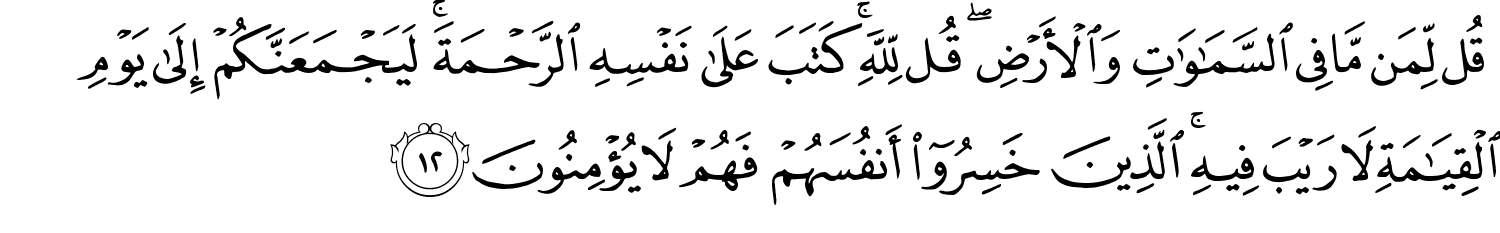 قُل لِّمَن مَّا فِى ٱلسَّمَٰوَٰتِ وَٱلْأَرْضِ ۖ قُل لِّلَّهِ ۚ كَتَبَ عَلَىٰ نَفْسِهِ ٱلرَّحْمَةَ ۚ لَيَجْمَعَنَّكُمْ إِلَىٰ يَوْمِ
ٱلْقِيَٰمَةِ لَا رَيْبَ فِيهِ ۚ ٱلَّذِينَ خَسِرُوٓا۟ أَنفُسَهُمْ فَهُمْ لَا يُؤْمِنُونَ ١٢